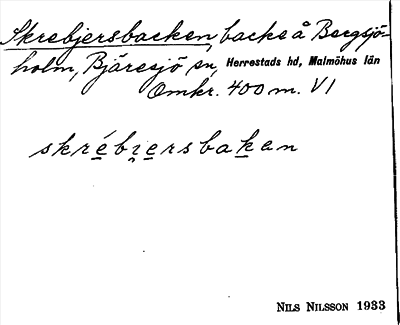 Skrebjersbacken, backe å Bergsjö-
holm, Bjäresjö sn, Herrestads hd, Malmöhus län
Omkr. 400 m. V1
skrébɪersbaken
NILS NILSSON 1933